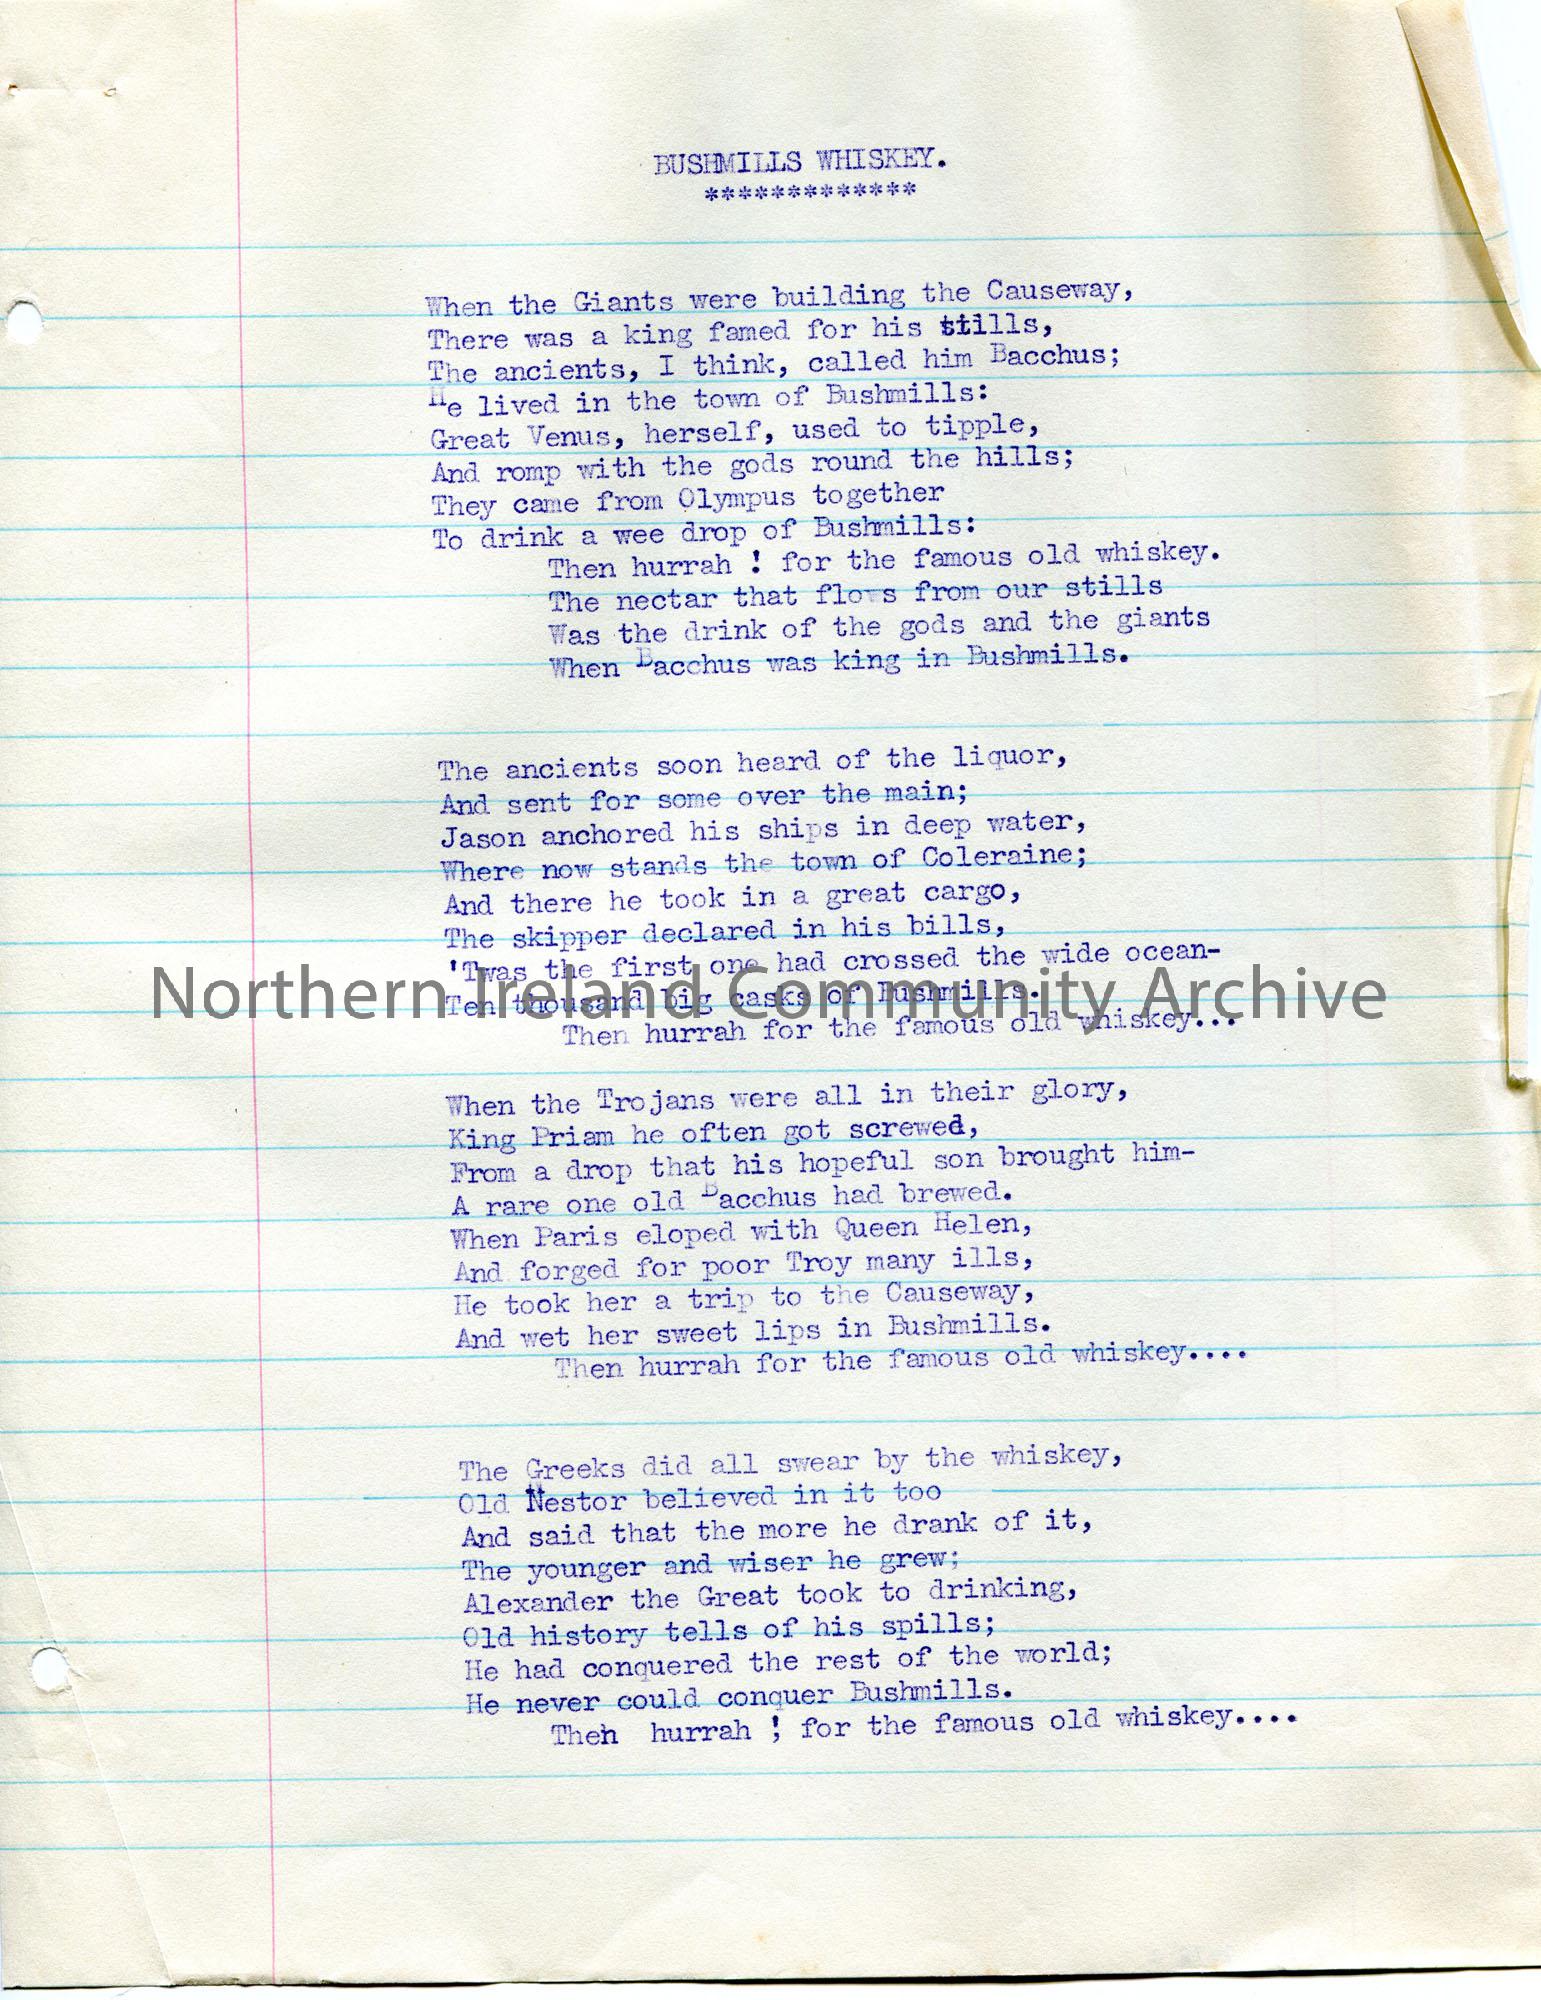 BUSHMILLS WHISKEY.
*************
When the Giants were building the Causeway,
There was a king famed for his stills,
The ancients, I think, called him Bacchus;
He lived in the town of Bushmills:
Great Venus, herself, used to tipple,
And romp with the gods round the hills;
They came from Olympus together
To drink a wee drop of Bushmills:
Then hurrah ! for the famous old whiskey.
The nectar that flows from our stills
Was the drink of the gods and the giants
When Bacchus was king in Bushmills.
The ancients soon heard of the liquor,
And sent for some over the main;
Jason anchored his ships in deep water,
Where now stands the town of Coleraine;
And there he took in a great cargo,
The skipper declared in his bills,
'Twas the first one had crossed the wide ocean-
Ten thousand big casks of Bushmills.
Northern Ireland Community Archive
Then hurrah for the famous old whiskey...
When the Trojans were all in their glory,
King Priam he often got screwed,
From a drop that his hopeful son brought him-
A rare one old Bacchus had brewed.
When Paris eloped with Queen Helen,
And forged for poor Troy many ills,
He took her a trip to the Causeway,
And wet her sweet lips in Bushmills.
Then hurrah for the famous old whiskey....
The Greeks did all swear by the whiskey,
Old Nestor believed in it too
And said that the more he drank of it,
The younger and wiser he grew;
Alexander the Great took to drinking,
Old history tells of his spills;
He had conquered the rest of the world;
He never could conquer Bushmills.
Then hurrah ! for the famous old whiskey....